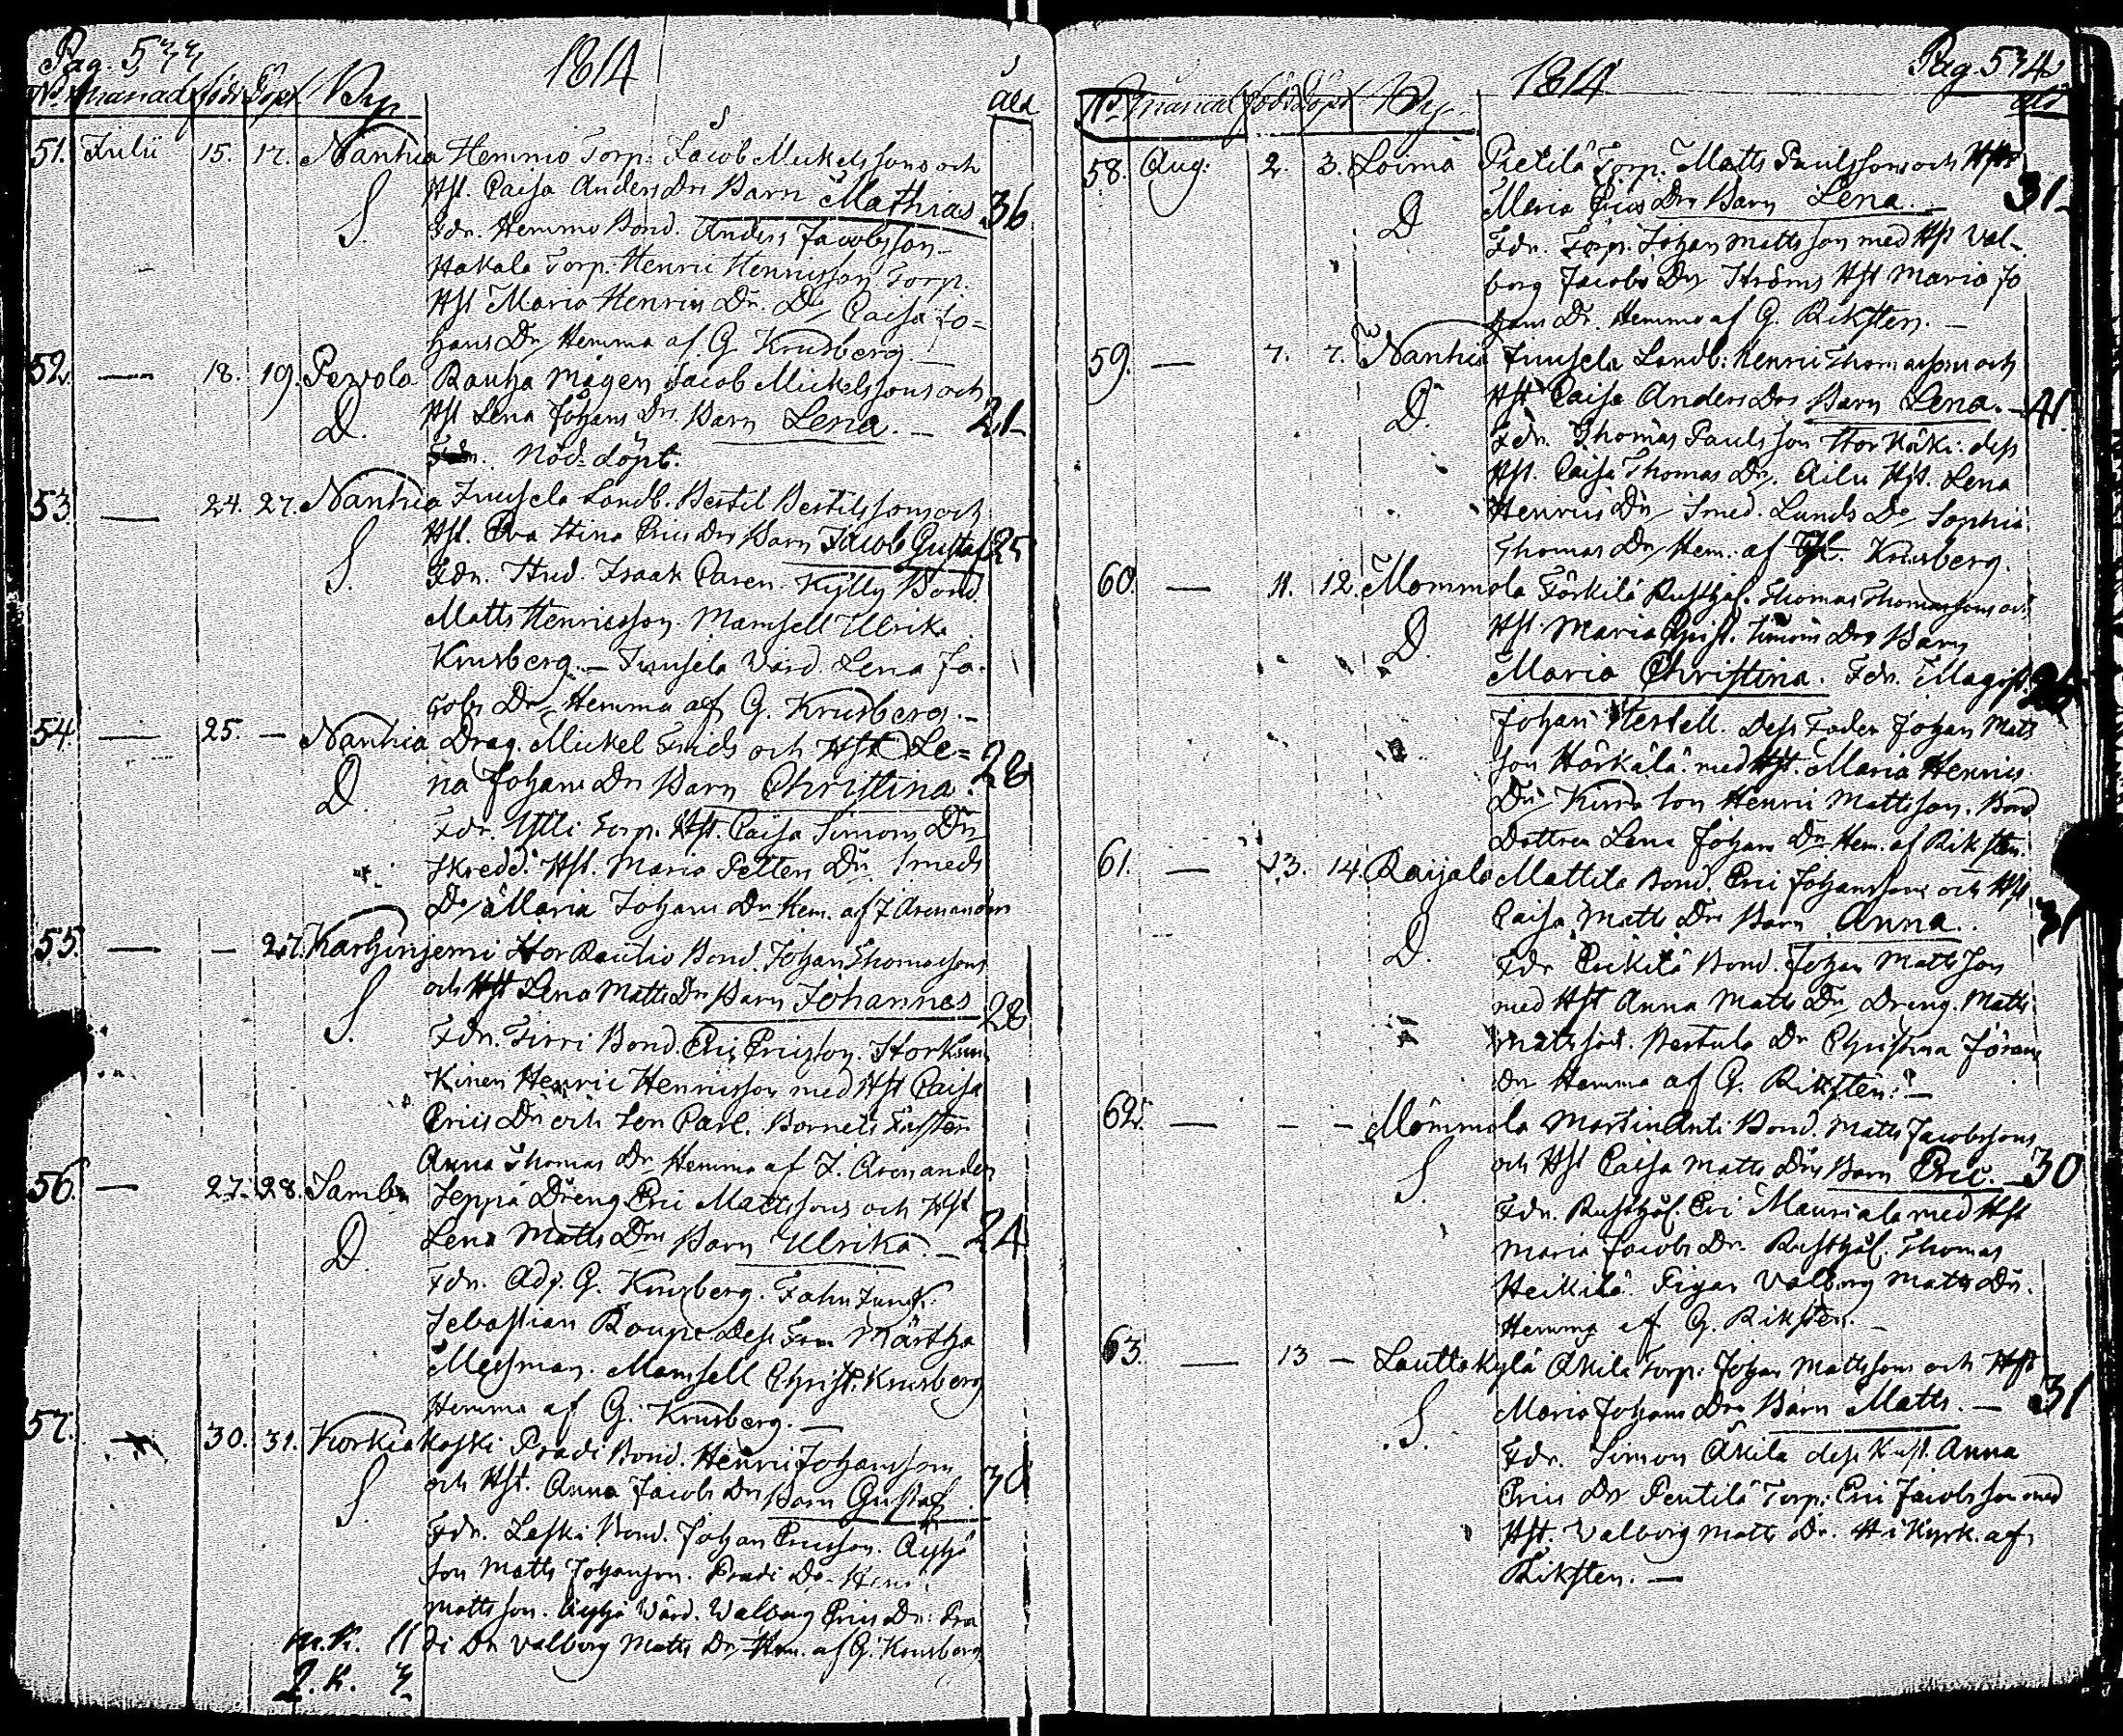 Pag. 533
1814
No Månad födt Döpt By
ålld
51. Julii 15. 17. Nanhia Hemmio Torp: Jacob Mickelssons och
S. Hst. Caisa Anders Drs Barn Mathias 36
Fdr. Hemmo Bond. Anders Jacobsson
Hakala Torp. Henric Henricsson Torp.
Hst Maria Henrics Dr. Do Caisa Jo=
hans Dr Hemma af G. Krusberg. —
52. — 18. 19. Pervola Rauha Mågen Jacob Mickelssons och
D. Hst Lena Johans Drs Barn Lena. — 21
Nöd-döpt.
53. — 24. 27. Nanhia Juusela Landb. Bertil Bertilssons och
S. Hst. Eva Stina Erics Drs Barn Jacob Gustaf 25
Fdr. Stud. Isaak Caren. Kylly Bond.
Matts Henricsson. Mamsell Ulrika
Krusberg. — Juusela Värd. Lena Ja-
cobs Dr Hemma af G. Krusberg. —
54. — 25. — Nanhia Drag. Mickel Frids och Hst Le=
D. na Johans Drs Barn Christina. 28
Fdr. Ylli Torp. Hst. Caisa Simons Dr
Skredd. Hst. Maria Petters Dr. Smeds
Do Maria Johans Dr Hem. af J Arenander
55. — — 27. Karhinjemi Stor Rautio Bond. Johan Thomassons
S. och Hst Lena Matts Drs Barn Johannes 28
Fdr. Tirri Bond. Eric Ericsson. Stor
Kinen Henric Henricsson med Hst Caisa
Erics Dr och Son Carl. Barnets Faster
Anna Thomas Dr Hemma af J. Arenander
56. — 27. 28. Sambu Seppä Dreng Eric Mattssons och Hst
D. Lena Matts Drs Barn Ulrika. — 24
Fdr. Adj. G. Krusberg. Fahn Junk.
Sebastian Roupe Dess Fru Märtha
Messman. Mamsell Christ. Krusberg
Hemma af G. Krusberg. —
57. — 30. 31. Korkiakoski Pradi Bond. Henric Johanssons
S. och Hst. Anna Jacobs Drs Barn Gustaf. 30
Fdr. Laski Bond. Johan Ericsson.
Son Matts Johansson. Pradi Do
Mattsson. Värd. Walborg Erics Dr: Pra
di Dr Valborg Matts Dr Hem. af G. Krusberg
M.K. 11
Q.K. 3
Pag. 534
1814
No Månad född Döpt By
ålld
58. Aug. 2. 3. Loima Pietilä Torp. Matts Paulssons och Hst
D. Maria Erics Drs Barn Lena. — 31
Fdr. Torp. Johan Mattsson med Hst Val-
borg Jacobs Dr Ströms Hst Maria Jo
hans Dr. Hemma af G. Riksten. —
59. — 7. 7. Nanhia Juusela Landb: Henric Thomassons och
D. Hst Caisa Anders Drs Barn Lena. — 41.
Fdr. Thomas Paulsson Stor Käki. dess
Hst. Caisa Thomas Dr. Ailu Hst. Lena
Henrics Dr Smed. Lunds Do Sophia
Thomas Dr Hem. af Krusberg.
60. — 11. 12. Mommola Förkilä Rusthål. Thomas Thomassons och
D. Hst. Maria Christ. Simons Drs Barn
Maria Christina. Fdr. Magist. 26
Johan Hertell. Dess Fader Johan Mats
son Härkälä med Hst. Maria Henrics
Dr Kurra Son Henric Mattsson. Bond
Dottren Lena Johans Dr Hem. af Riksten.
61. — 13. 14. Raijala Mattila Bond. Eric Johanssons och Hst
D. Caisa Matts Drs Barn Anna. 31
Fdr Erikilä Bond. Johan Mattsson
med Hst Anna Matts Dr Dreng. Matts
Mattsson. Bertula Dr Christina Jörans
Dr Hemma af G. Riksten. —
62. — — — Mommola Martin Anti Bond. Matts Jacobssons
S. och Hst Caisa Matts Drs Barn Eric. — 30
Fdr. Rusthål. Eric Mauriala med Hst
Maria Jacobs Dr. Rusthål. Thomas
Heikilä. Pigan Valborg Matts Dr.
Hemma af G. Riksten. —
63. — 13 — Lauttakylä Äkilä Torp: Johan Mattssons och Hst
S. Maria Johans Drs Barn Matts. — 31
Fdr. Simon Äkilä dess Hust. Anna
Erics Dr Pentilä Torp: Eric Jacobsson med
Hst. Valborg Matts Dr. i Kyrk. af
Riksten. —